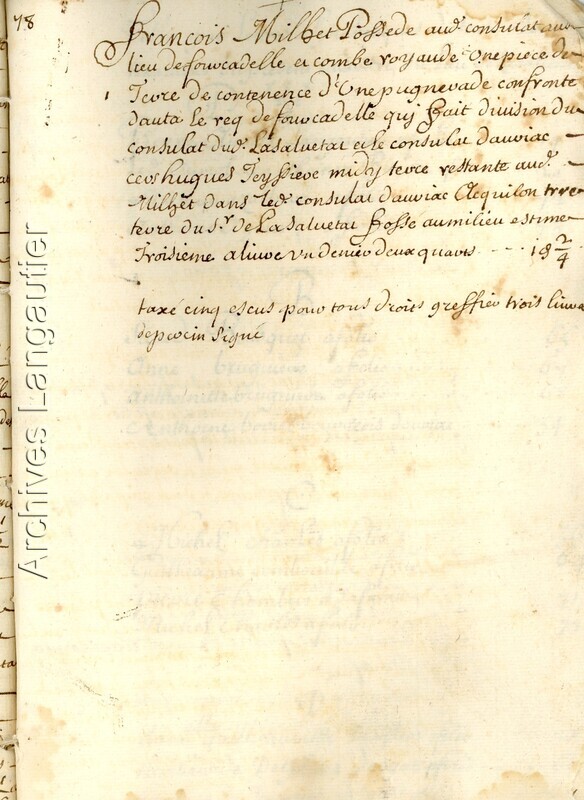 78
François Milhet Possede aud. consulat au
lieu de fourcadelle et combe royaude Une piece de
1 Terre de contenence d'Une pugnerade confronte
d'auta le req de fourcadelle quj fait division du
consulat dud. Lasalvetat et le consulat dauriac
cers hugues Teyssieve midy terre restante aud.
Milhet dans led. consulat dauriac Aequilon
terre du s.r de Lasalvetat fossé au milieu estimé
Troisieme alivre un denier deux quarts - - - - 1δ 2/4
taxé cinq escus pour tous droits greffier trois livres
deprocin signé
Archives Langautier